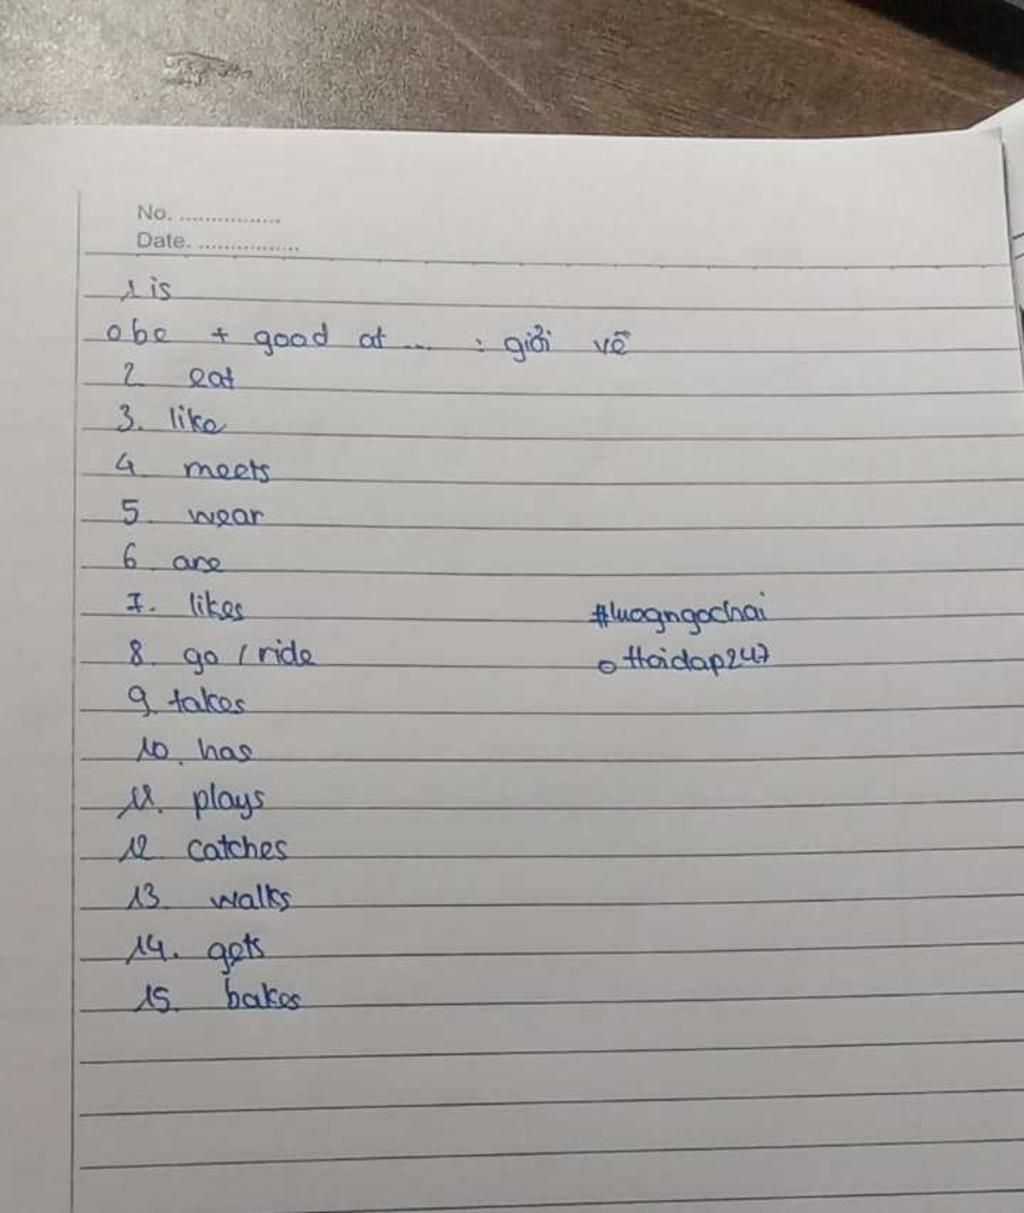 No. ................
Date. ................
1 is
obe + good at ... : giỏi về
2 eat
3. like
4 meets
5. wear
6. are
7. likes
#luogngochai
8. go / ride
o Hoidap247
9. takes
10. has
11. plays
12 catches
13. walks
14. gets
15. bakes